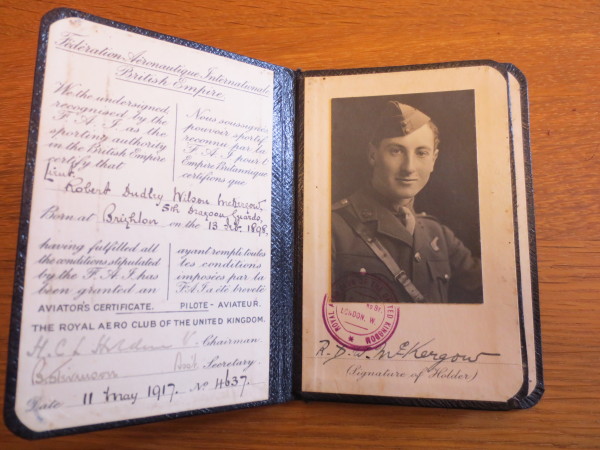 Fédération Aéronautique Internationale
British Empire
We the undersigned
recognised by the
F.A.I. as the
sporting authority
in the British Empire
certify that
Nous soussignés
pouvoir sportif
reconnu par la
F.A.I. pour l'
Empire Britannique
certifions que
Lieut.
Robert Dudley Wilson McKergow,
5th Dragoon Guards,
Born at Brighton on the 13 Feb. 1898,
having fulfilled all
the conditions stipulated
by the F.A.I. has
been granted an
AVIATOR'S CERTIFICATE.
ayant rempli toutes
les conditions
imposées par la
F.A.I. a été breveté
PILOTE-AVIATEUR.
THE ROYAL AERO CLUB OF THE UNITED KINGDOM.
H. C. L. Holden Chairman
B. Stevenson Secretary.
Date 11 May 1917. No 4637.
LONDON. W
KINGDOM
R. D. W. McKergow
(Signature of Holder)